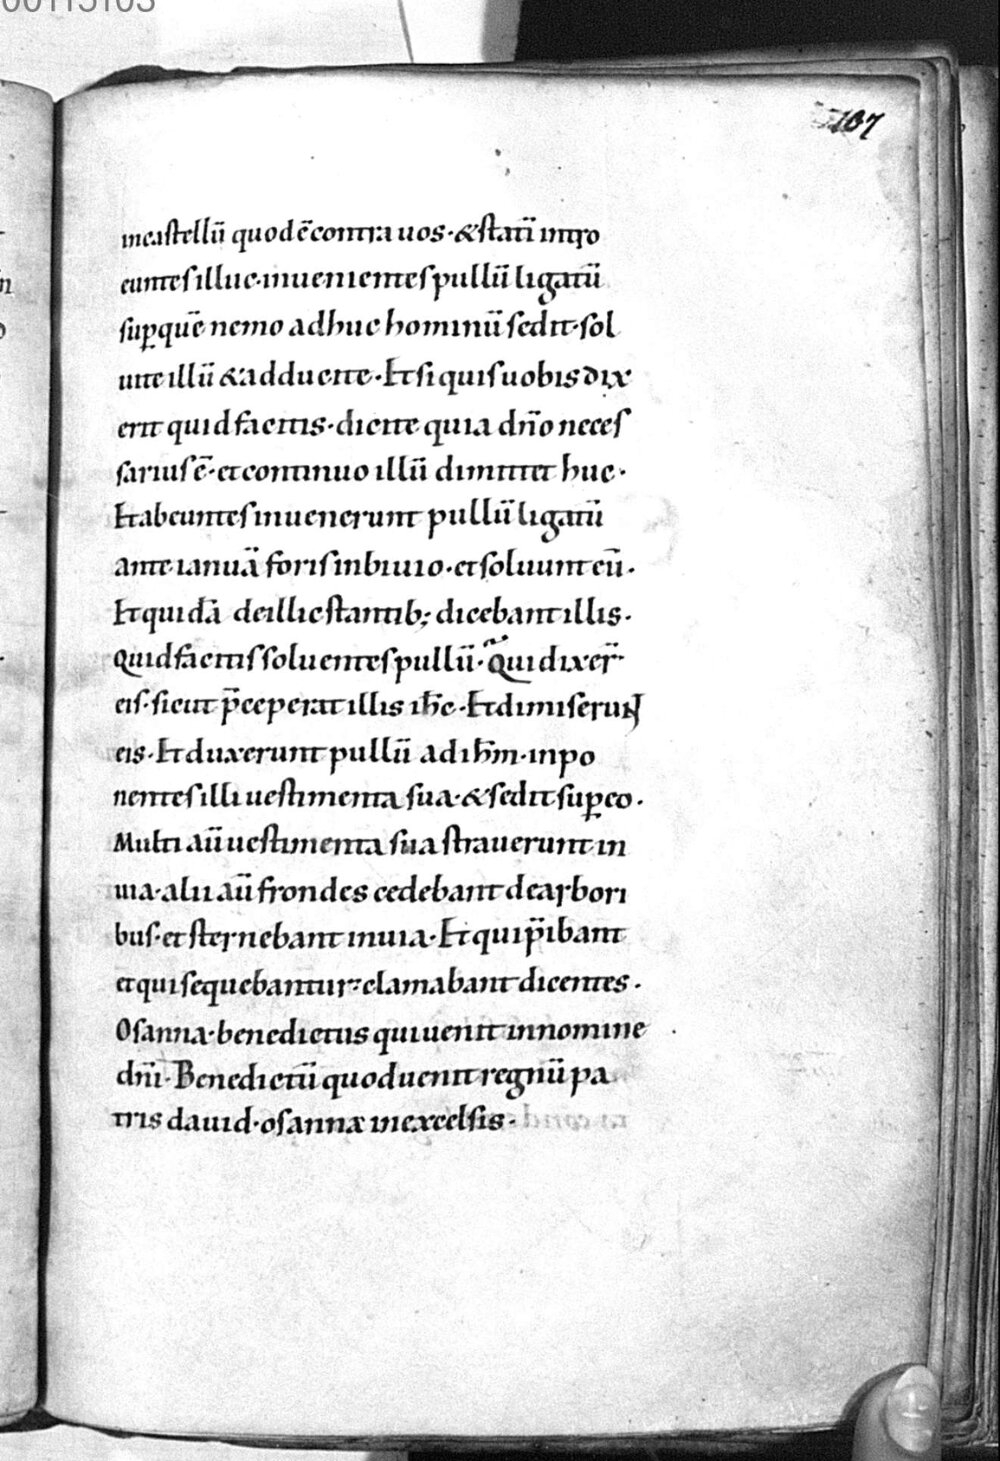 00115103
107
incastellū quod ē contra uos · & statī intro
euntes illuc · inuenientes pullū ligatū
sup̱ quē nemo adhuc hominū sedit · sol
uite illū & adducite · Et si quis uobis dix
erit quid facitis · dicite quia dn̄o neces
sarius ē · et continuo illū dimittet huc ·
Et abeuntes inuenerunt pullū ligatū
ante ianuā foris inbiuio · et soluunt eū ·
Et quidā de illic stantib; dicebant illis ·
Quid facitis soluentes pullū · Qui dixer̄
eis · sicut p̄ceperat illis ih̄c · Et dimiserunt
eis · Et duxerunt pullū ad ih̄m · inpo
nentes illi uestimenta sua · & sedit sup̱ eo ·
Multi aū uestimenta sua strauerunt in
uia · alii aū frondes cedebant de arbori
bus · et sternebant inuia · Et qui p̄ibant
et qui sequebantur clamabant dicentes ·
Osanna · benedictus qui uenit innomine
dn̄i · Benedictū quod uenit regnū pa
tris dauid · osanna inexcelsis ·